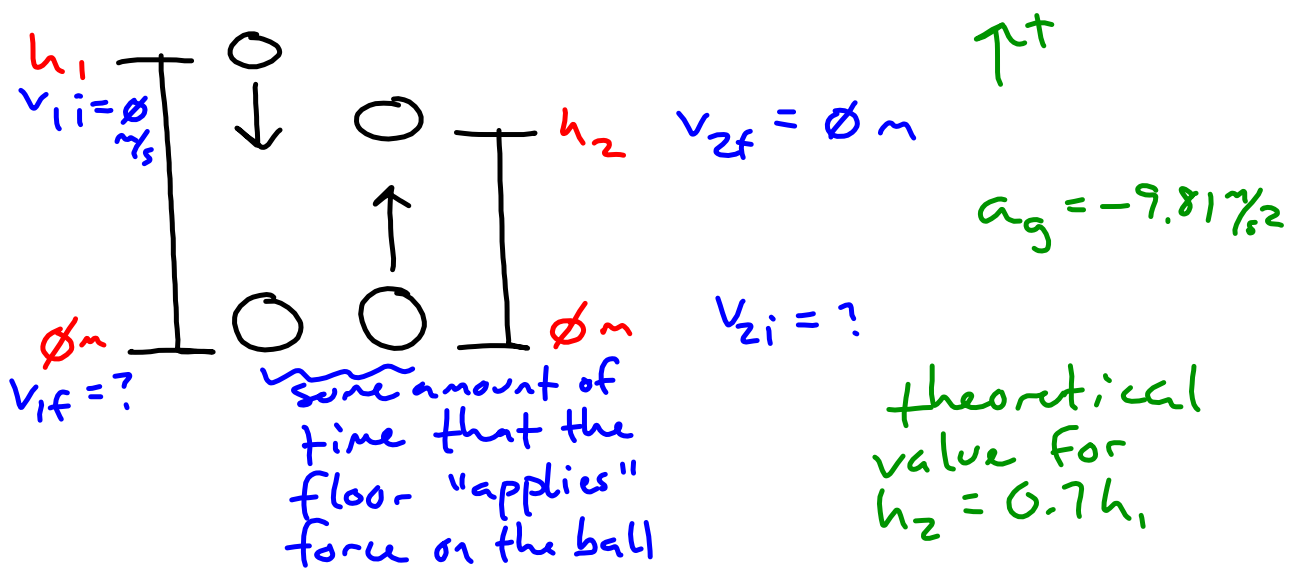 h₁
v₁ᵢ = ∅ m/s
∅ m
v₁f = ?
h₂
∅ m
some amount of
time that the
floor "applies"
force on the ball
v₂f = ∅ m
v₂ᵢ = ?
↑+
a_g = -9.81 m/s²
theoretical
value for
h₂ = 0.7h₁